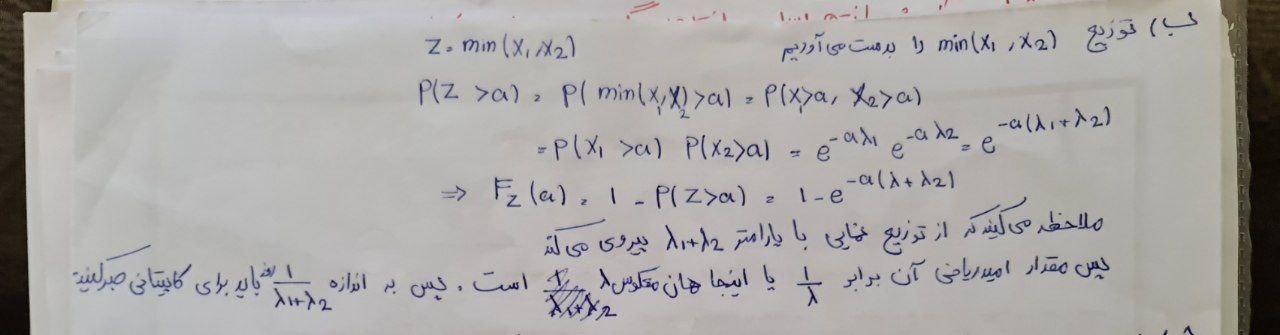 ب) توزیع min(x₁, x₂) را بدست می‌آوریم Z = min(x₁, x₂)
P(Z > a) = P(min(x₁, x₂) > a) = P(x₁ > a, x₂ > a)
= P(x₁ > a) P(x₂ > a) = e^{-aλ₁} e^{-aλ₂} = e^{-a(λ₁+λ₂)}
⇒ F_Z(a) = 1 - P(Z > a) = 1 - e^{-a(λ+λ₂)}
ملاحظه می‌کنید که از توزیع نمایی با پارامتر λ₁+λ₂ پیروی می‌کند
پس مقدار امید ریاضی آن برابر 1/λ یا اینجا همان معکوس λ است. پس به اندازه 1/(λ₁+λ₂) باید برای کاپیتانی صبر کنید